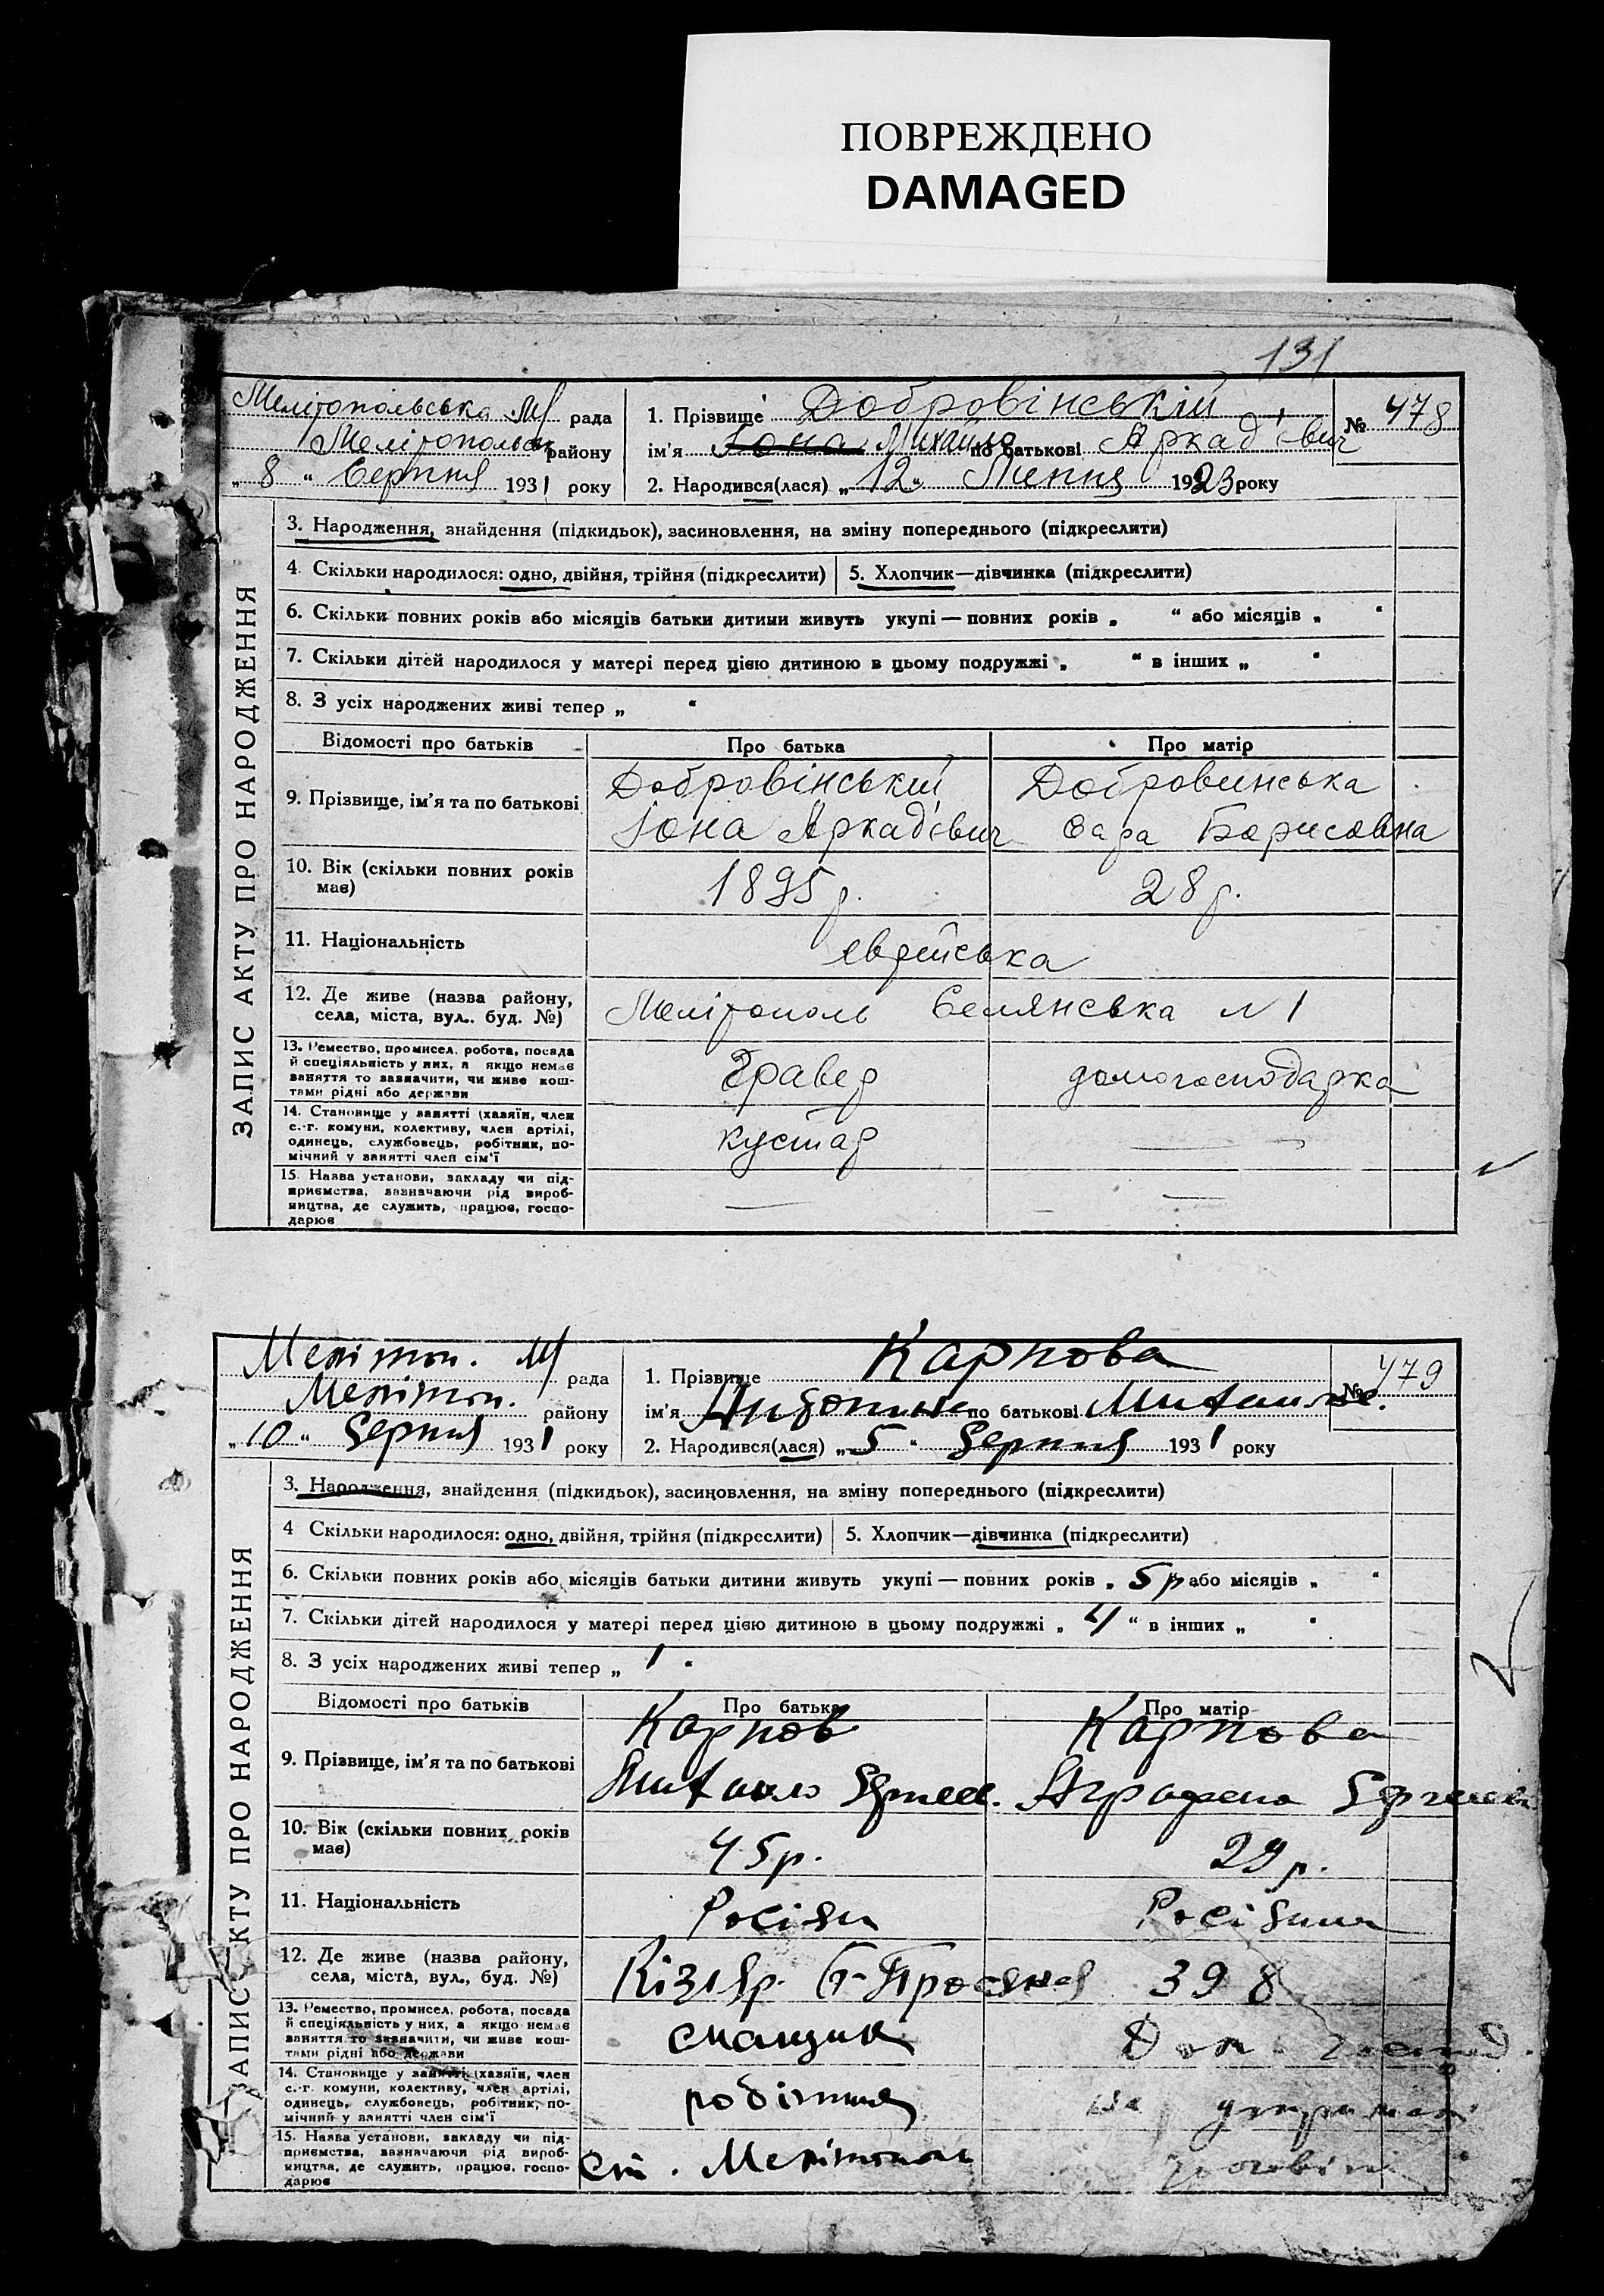 ПОВРЕЖДЕНО
DAMAGED
131
Мелітопольська М/ рада
Мелітопольськ району
„ 8 “ Серпня 1931 року
1. Прізвище Добровінський
№ 478
ім'я Іона Михайло по батькові Аркад'євич
2. Народився(лася) „ 12 “ Липня 1923 року
ЗАПИС АКТУ ПРО НАРОДЖЕННЯ
3. Народження, знайдення (підкидьок), засиновлення, на зміну попереднього (підкреслити)
4. Скільки народилося: одно, двійня, трійня (підкреслити)
5. Хлопчик—дівчинка (підкреслити)
6. Скільки повних років або місяців батьки дитини живуть укупі — повних років „ “ або місяців „ “
7. Скільки дітей народилося у матері перед цією дитиною в цьому подружжі „ “ в інших „ “
8. З усіх народжених живі тепер „ “
Відомості про батьків
Про батька
Про матір
9. Прізвище, ім'я та по батькові
Добровінський
Іона Аркад'євич
Добровинська
Сара Борисовна
10. Вік (скільки повних років
має)
1895 р.
28 р.
11. Національність
єврейська
12. Де живе (назва району,
села, міста, вул.. буд. №)
Мелітополь Селянська № 1
13. Ремество, промисел, робота, посада
й спеціяльність у них, а якщо немає
заняття то зазначити, чи живе кош-
тами рідні або держави
Гравер
домогосподарка
14. Становище у занятті (хазяїн, член
с.-г. комуни, колективу, член артілі,
одинець, службовець, робітник, по-
мічний у занятті член сім'ї
кустар
—
15. Назва установи, закладу чи під-
приємства, зазначаючи рід вироб-
ництва, де служить, працює, госпо-
дарює
—
—
Мелітоп. М/ рада
Мелітоп. району
„ 10 “ Серпня 1931 року
1. Прізвище Карпова
№ 479
ім'я по батькові Михайлов.
2. Народився(лася) „ 5 “ Серпня 1931 року
ЗАПИС АКТУ ПРО НАРОДЖЕННЯ
3. Народження, знайдення (підкидьок), засиновлення, на зміну попереднього (підкреслити)
4 Скільки народилося: одно, двійня, трійня (підкреслити)
5. Хлопчик—дівчинка (підкреслити)
6. Скільки повних років або місяців батьки дитини живуть укупі — повних років „ 5 р або місяців „ “
7. Скільки дітей народилося у матері перед цією дитиною в цьому подружжі „ 4 “ в інших „ “
8. З усіх народжених живі тепер „ 1 “
Відомості про батьків
Про батька
Про матір
9. Прізвище, ім'я та по батькові
Карпов
Михайло
Карпова
Аграфена
10. Вік (скільки повних років
має)
45 р.
29 р.
11. Національність
Росіян
Росіянка
12. Де живе (назва району,
села, міста, вул., буд. №)
Кізіяр. 398
13. Ремество, промисел, робота, посада
й спеціяльність у них, а якщо немає
заняття то зазначити, чи живе кош-
тами рідні або держави
смащик
Дом. господ.
14. Становище у занятті (хазяїн, член
с.-г. комуни, колективу, член артілі,
одинець, службовець, робітник, по-
мічний у занятті член сім'ї
робітник
на утриман
15. Назва установи, закладу чи під-
приємства, зазначаючи рід вироб-
ництва, де служить, працює, госпо-
дарює
Ст. Мелітополь